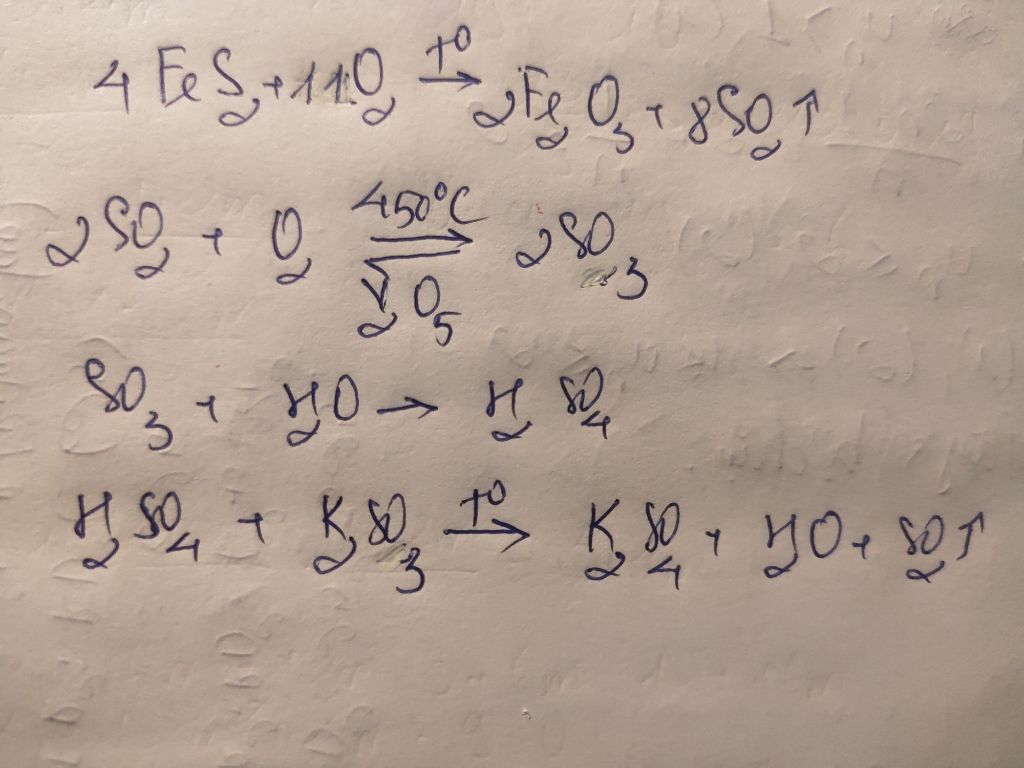 4 FeS₂ + 11O₂ →(t⁰) 2Fe₂O₃ + 8SO₂↑
2SO₂ + O₂ ⇌(450°C, V₂O₅) 2SO₃
SO₃ + H₂O → H₂SO₄
H₂SO₄ + K₂SO₃ →(t⁰) K₂SO₄ + H₂O + SO₂↑